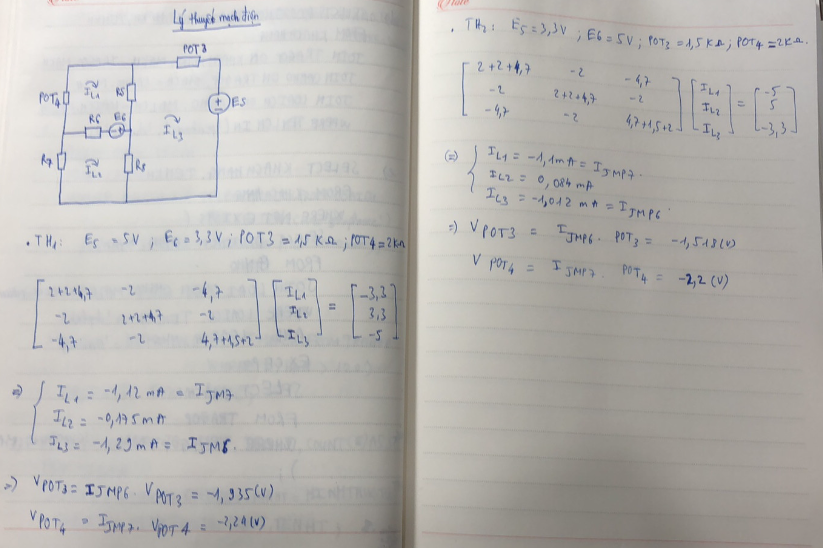 Lý thuyết mạch điện
POT3
POT4
I_L1
R5
E5
R6
E6
I_L3
R7
I_L2
R8
. TH1: E5 = 5V ; E6 = 3,3V ; POT3 = 1,5 KΩ ; POT4 = 2KΩ
[2+2+4,7 -2 -4,7] [I_L1] = [-3,3]
[-2 2+2+4,7 -2] [I_L2] [3,3]
[-4,7 -2 4,7+1,5+2] [I_L3] [-5]
=> { I_L1 = -1,12 mA = I_JM7
I_L2 = -0,175 mA
I_L3 = -1,29 mA = I_JM6
=) V_POT3 = I_JMP6 . V_POT3 = -1,935 (V)
V_POT4 = I_JMP7 . V_POT4 = -2,24 (V)
. TH2: E5 = 3,3V ; E6 = 5V ; POT3 = 1,5 KΩ ; POT4 = 2KΩ.
[2+2+4,7 -2 -4,7] [I_L1] = [-5]
[-2 2+2+4,7 -2] [I_L2] [5]
[-4,7 -2 4,7+1,5+2] [I_L3] [-3,3]
(=) { I_L1 = -1,1mA = I_JMP7.
I_L2 = 0,084 mA
I_L3 = -1,012 mA = I_JMP6.
=) V_POT3 = I_JMP6 . POT3 = -1,518 (V)
V_POT4 = I_JMP7 . POT4 = -2,2 (V)